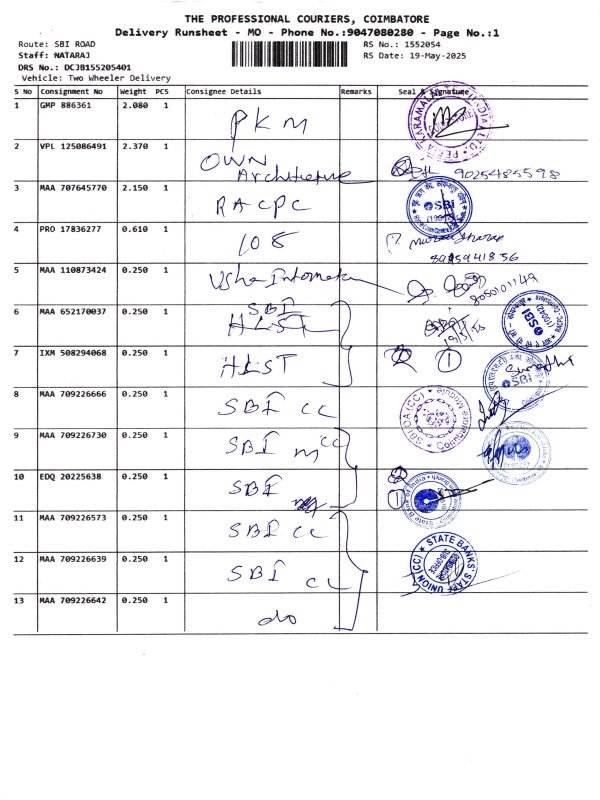 THE PROFESSIONAL COURIERS, COIMBATORE
Delivery Runsheet - MO - Phone No.:9047080280 - Page No.:1
Route: SBI ROAD
Staff: NATARAJ
DRS No.: DCJB155205401
Vehicle: Two Wheeler Delivery
RS No.: 1552054
RS Date: 19-May-2025
S No Consignment No Weight PCS Consignee Details Remarks Seal & Signature
1 GMP 886361 2.080 1 PKM
2 VPL 125086491 2.370 1 OWN Architecture 9025485598
3 MAA 707645770 2.150 1 RACPC SBI
4 PRO 17836277 0.610 1 108
5 MAA 110873424 0.250 1 Usha 8050101149
6 MAA 652170037 0.250 1 SBI HLST SBI
7 IXM 508294068 0.250 1 HLST 2 1 SBI
8 MAA 709226666 0.250 1 SBI CC
9 MAA 709226730 0.250 1 SBI CC
10 EDQ 20225638 0.250 1 SBI 2 1 State Bank of India
11 MAA 709226573 0.250 1 SBI CC
12 MAA 709226639 0.250 1 SBI CC STATE BANKS' STAFF UNION (CC)
13 MAA 709226642 0.250 1 do